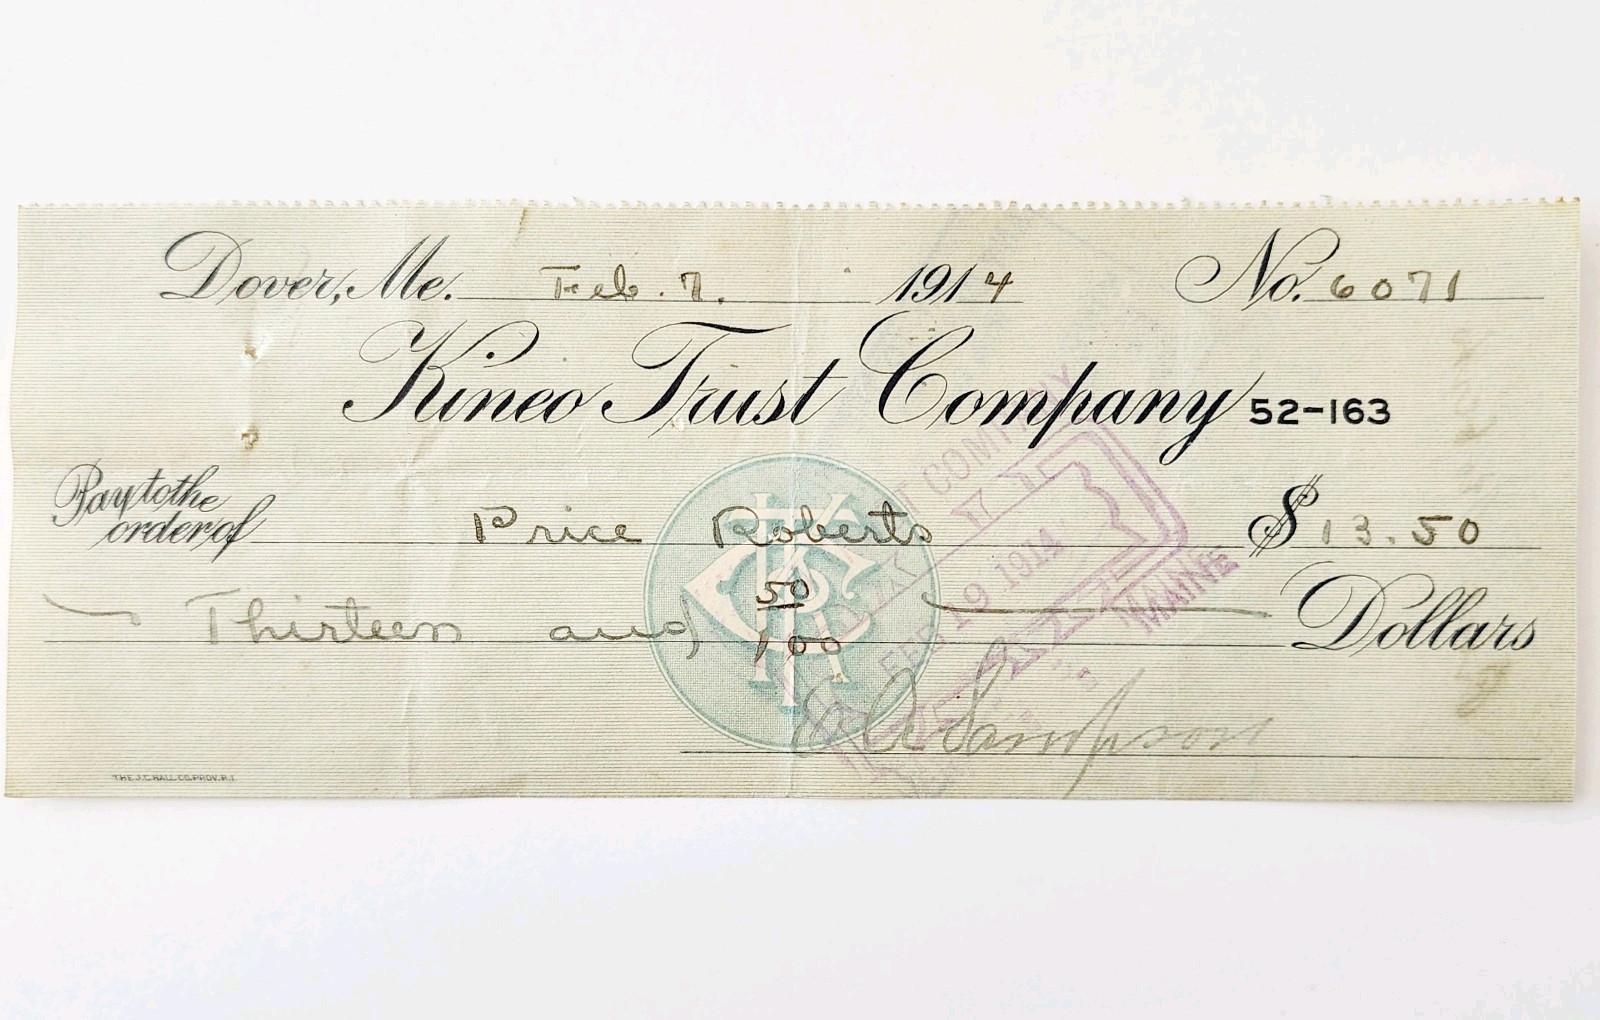 Dover, Me. Feb. 7. 1914 No. 6071
Kineo Trust Company 52-163
Pay to the order of Price Roberts $13.50
Thirteen and 50/100 Dollars
Sampson
THE J.C. HALL CO. PROV. R.I.
KTC
COMPANY
FEB 19 1914
MAINE